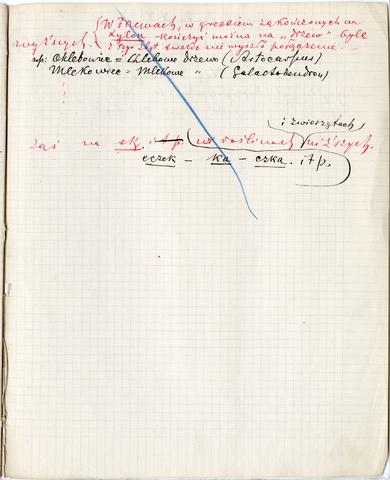 W drzewach, w greckiem zakończonych na
xylon kończyć można na "drzew" byle
wyższych. z tego zbyt twarde nie wyszło połączenie.
np: Chlebowiec = Chlebowe drzewo (Artocarpus)
Mlekowiec = Mlekowe " (Galactodendron)
i zwierzętach,
zaś na ek, itp. w roślinach niższych.
eczek - ka - czka. itp.